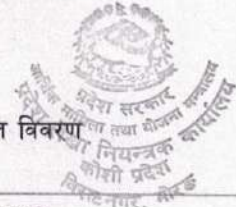 प्रदेश सरकार
आर्थिक मामिला तथा योजना मन्त्रालय
प्रदेश लेखा नियन्त्रक कार्यालय
कोशी प्रदेश
विराटनगर, मोरङ
विवरण